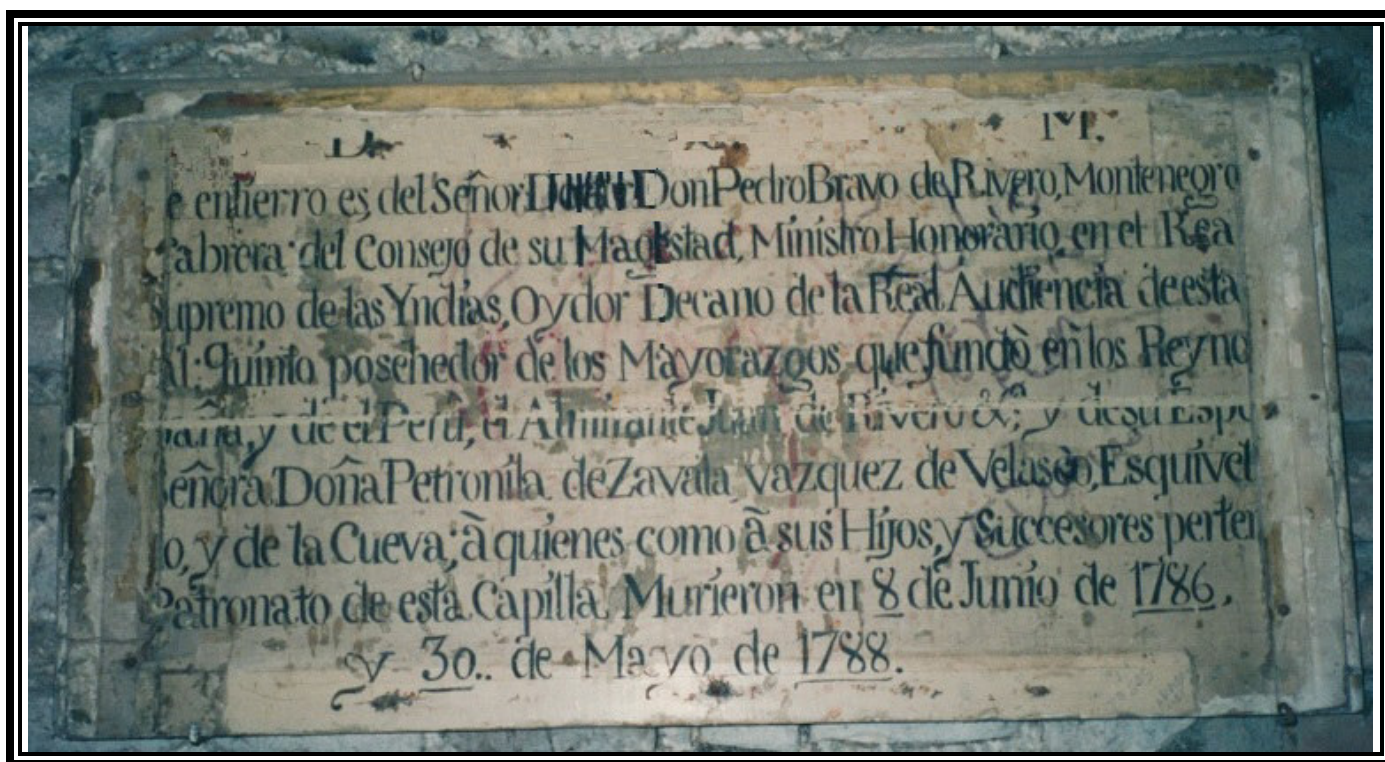 D. M.
e entierro es del Señor Don Pedro Bravo de Rivero, Montenegro
Cabrera del Consejo de su Magestad, Ministro Honoràrio en el Rea
Supremo de las Yndias, Oydor Decano de la Real Audiencia de esta
al: Quinto posehedor de los Mayorazgos que fundò en los Reyno
paña, y de el Perù, el Almirante Juan de Rivero &; y de su Espo
Señora Doña Petronila de Zavala vazquez de Velasco, Esquivel
o, y de la Cueva; à quienes como à sus Hijos, y Successores perten
Patronato de esta Capilla. Murieron en 8 de Junio de 1786,
y 30.. de Mayo de 1788.